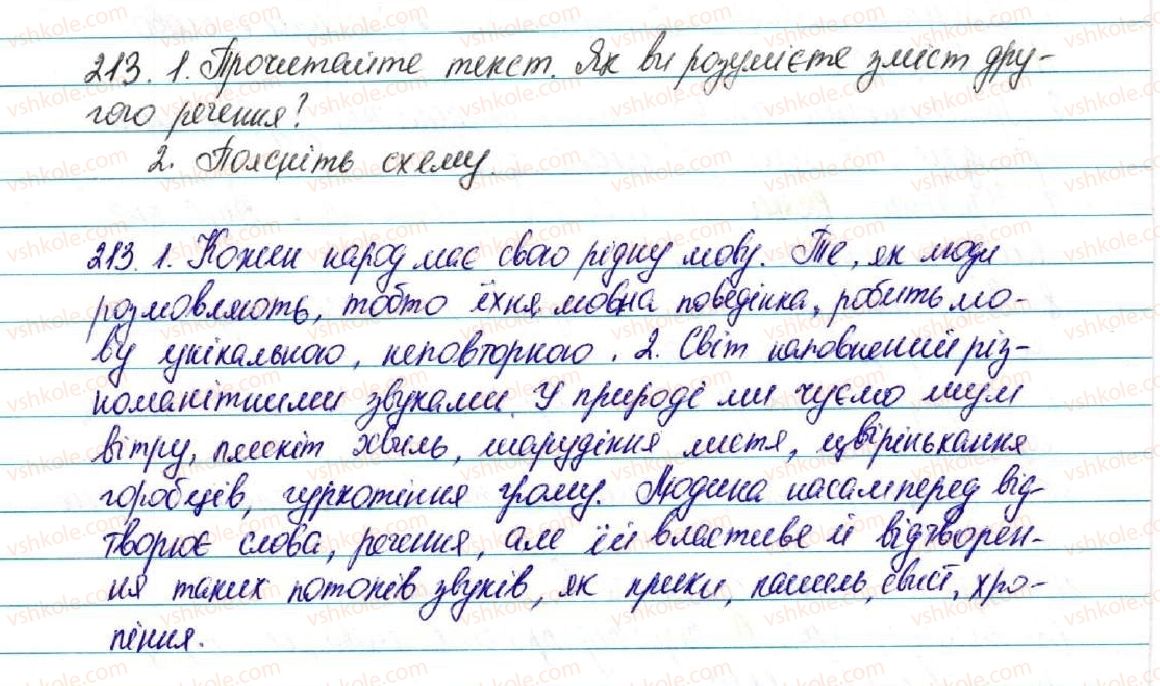 213. 1. Прочитайте текст. Як ви розумієте зміст дру-
гого речення?
2. Поясніть схему.
213. 1. Кожен народ має свою рідну мову. Те, як люди
розмовляють, тобто їхня мовна поведінка, робить мо-
ву унікальною, неповторною. 2. Світ наповнений різ-
номанітними звуками. У природі ми чуємо шум
вітру, плескіт хвиль, шарудіння листя, цвірінькання
горобців, гуркотіння грому. Людина насамперед від-
творює слова, речення, але їй властиве й відтворен-
ня таких потоків звуків, як крики, кашель, свист, хро-
піння.